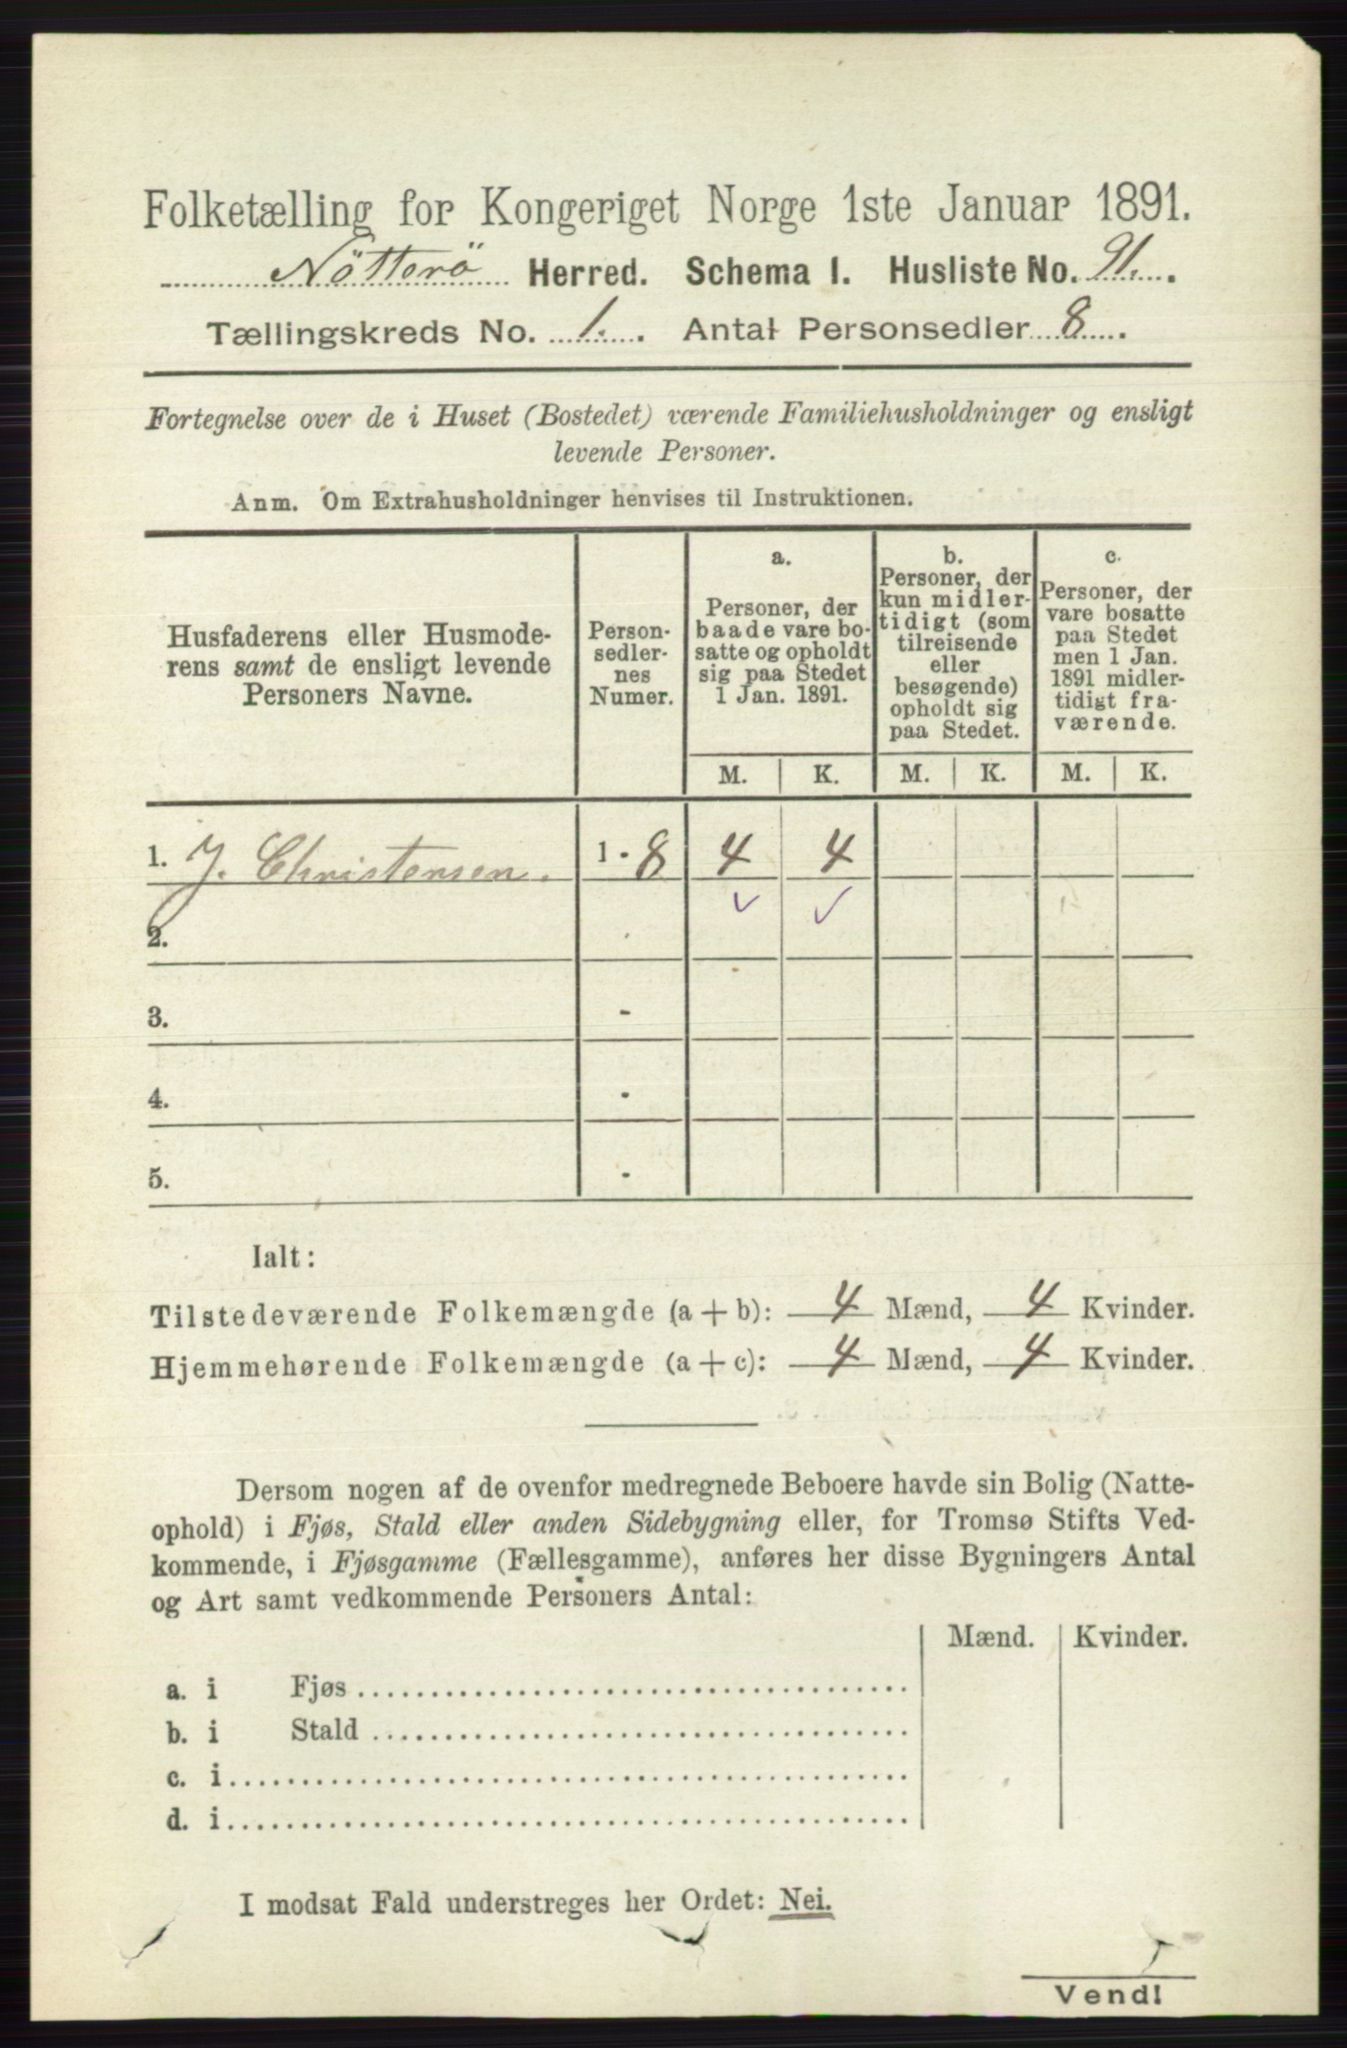 Folketælling for Kongeriget Norge 1ste Januar 1891.
Nötterö Herred. Schema I. Husliste No. 91.
Tællingskreds No. 1. Antal Personsedler 8.
Fortegnelse over de i Huset (Bostedet) værende Familiehusholdninger og ensligt
levende Personer.
Anm. Om Extrahusholdninger henvises til Instruktionen.
Husfaderens eller Husmode-
rens samt de ensligt levende
Personers Navne.
Person-
sedler-
nes
Numer.
a.
Personer, der
baade vare bo-
satte og opholdt
sig paa Stedet
1 Jan. 1891.
b.
Personer, der
kun midler-
tidigt (som
tilreisende
eller
besøgende)
opholdt sig
paa Stedet.
c.
Personer, der
vare bosatte
paa Stedet
men 1 Jan.
1891 midler-
tidigt fra-
værende.
M. K. M. K. M. K.
1. J. Christensen. 1 - 8 4 4
2.
3. -
4. -
5. -
Ialt:
Tilstedeværende Folkemængde (a + b): 4 Mænd, 4 Kvinder.
Hjemmehørende Folkemængde (a + c): 4 Mænd, 4 Kvinder.
Dersom nogen af de ovenfor medregnede Beboere havde sin Bolig (Natte-
ophold) i Fjøs, Stald eller anden Sidebygning eller, for Tromsø Stifts Ved-
kommende, i Fjøsgamme (Fællesgamme), anføres her disse Bygningers Antal
og Art samt vedkommende Personers Antal:
Mænd. Kvinder.
a. i Fjøs
b. i Stald
c. i
d. i
I modsat Fald understreges her Ordet: Nei.
Vend!